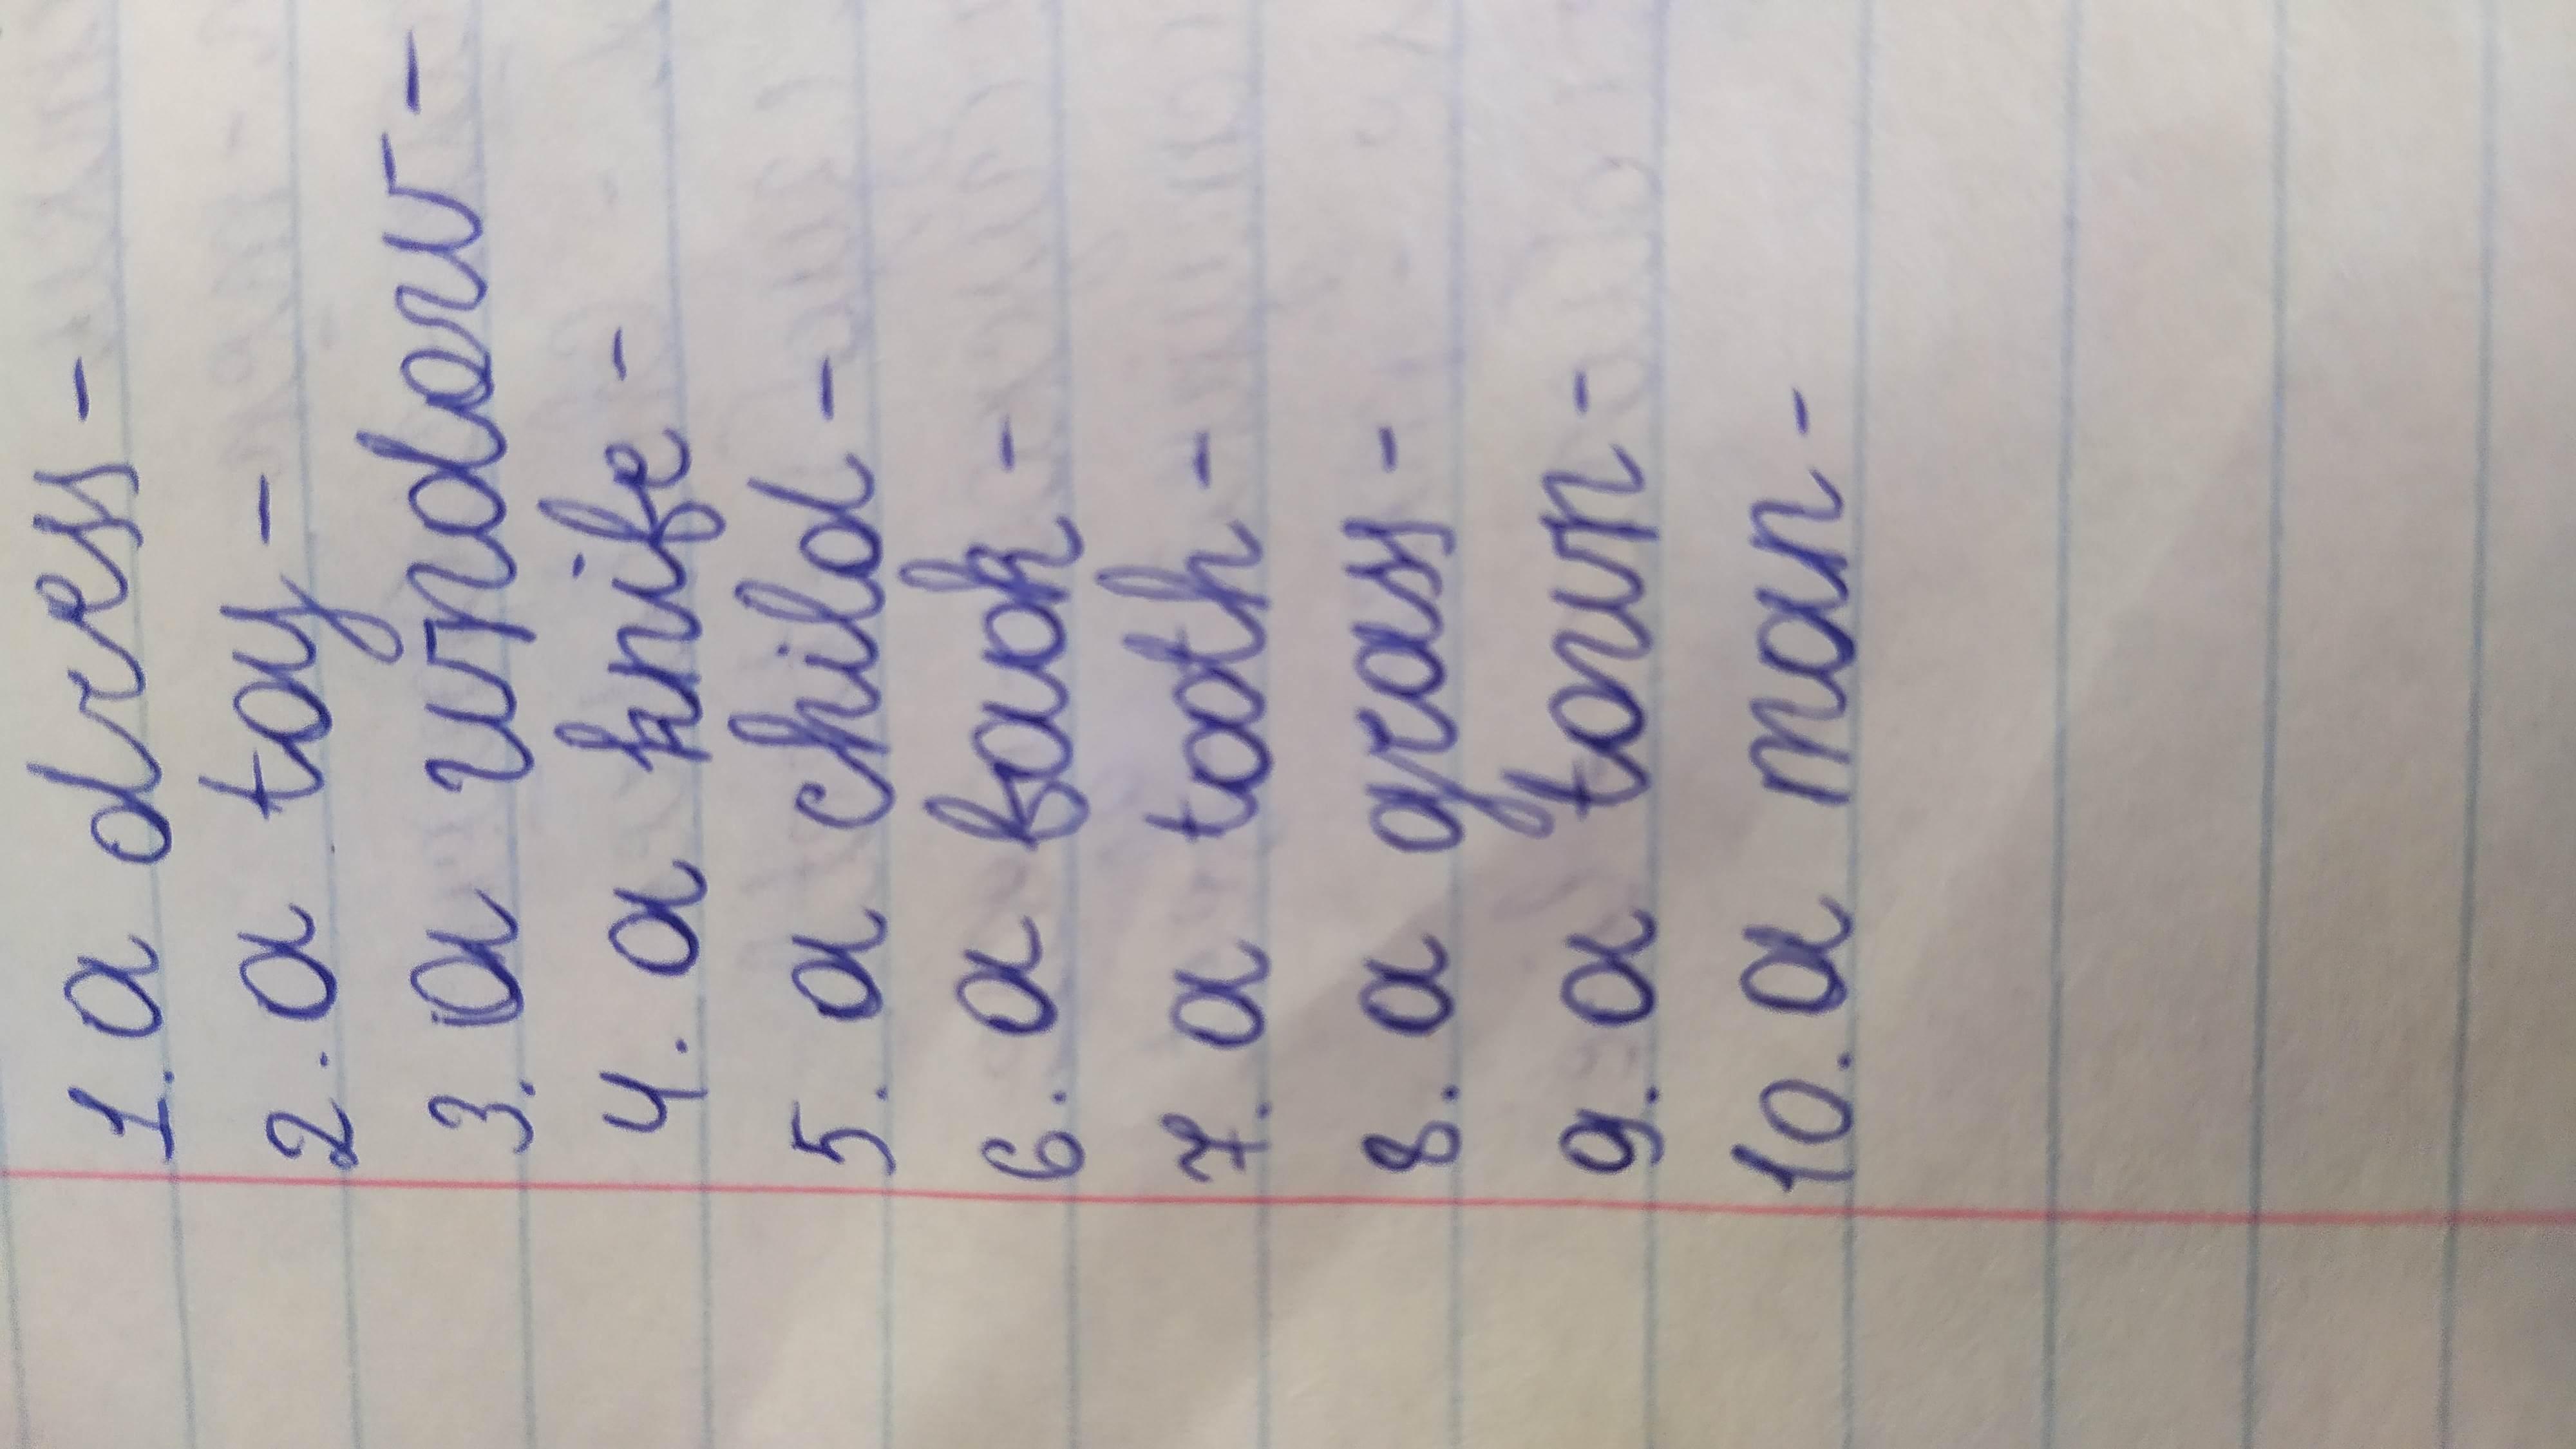 1. a dress -
2. a toy -
3. a window -
4. a knife -
5. a child -
6. a -
7. a toth -
8. a grass -
9. a town -
10. a man -